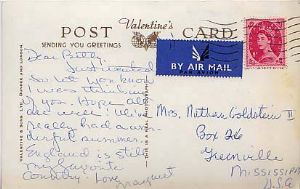 Valentine's
POST CARD
SENDING YOU GREETINGS
BY AIR MAIL
PAR AVION
Dear Betty,
Just wanted
to let you know
I was thinking
of you. Hope all
are well. We've
really had a won-
derful summer.
England is still
my favorite
Country. Love,
Margaret
Mrs. Nathan Goldstein II
Box 26
Greenville
MISSISSIPPI
U.S.A.
VALENTINE & SONS LTD. DUNDEE AND LONDON